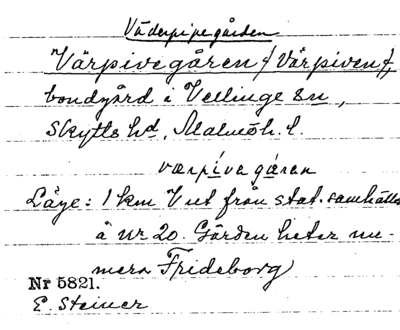 Väderpipegården
Värpivegåren (Värpiven),
bondgård i Vellinge sn,
Skytts hd, Malmöh. l.
værpívegǻren
Läge: 1 km V ut från stat. samhälle
å nr 20. Gården heter nu-
mera Frideborg
Nr 5821.
E. Steiner